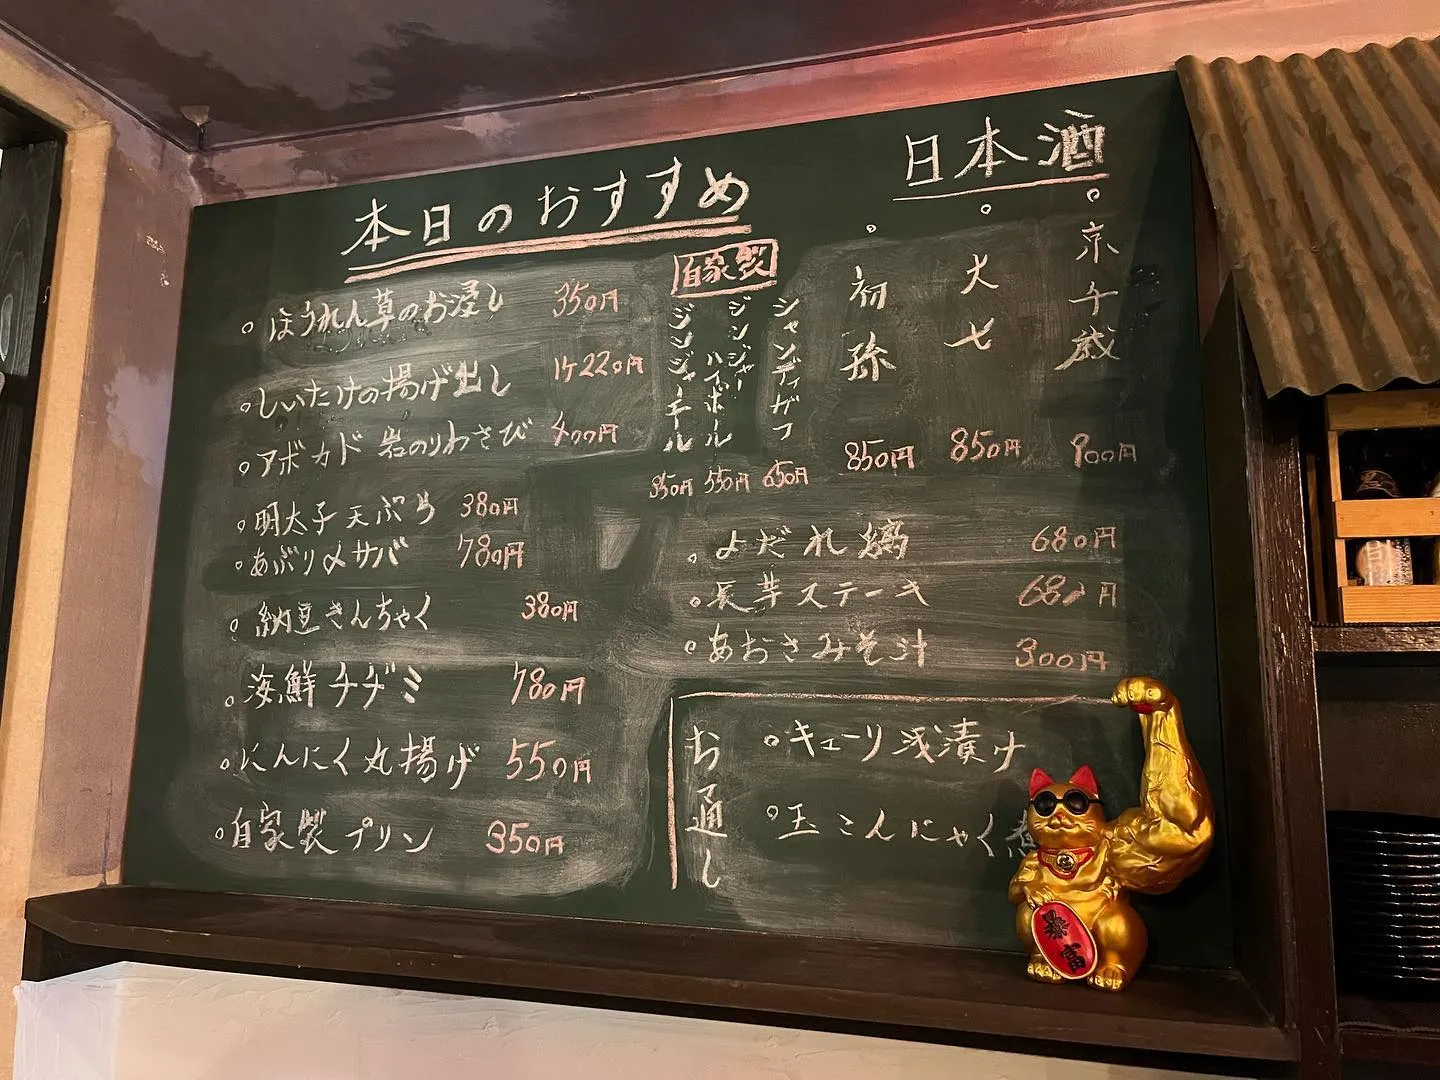 本日のおすすめ
ほうれん草のお浸し 350円
しいたけの揚げ出し 1ケ220円
アボカド 岩のりわさび 400円
明太子天ぷら 380円
あぶり〆サバ 780円
納豆きんちゃく 380円
海鮮チヂミ 780円
にんにく丸揚げ 550円
自家製プリン 350円
自家製
ジンジャーエール
350円
ジンジャーハイボール
550円
シャンディガフ
650円
日本酒
京千歳
900円
大七
850円
初孫
850円
よだれ鶏 680円
長芋ステーキ 680円
あおさみそ汁 300円
お通し
キューリ浅漬け
玉こんにゃく煮
暴富